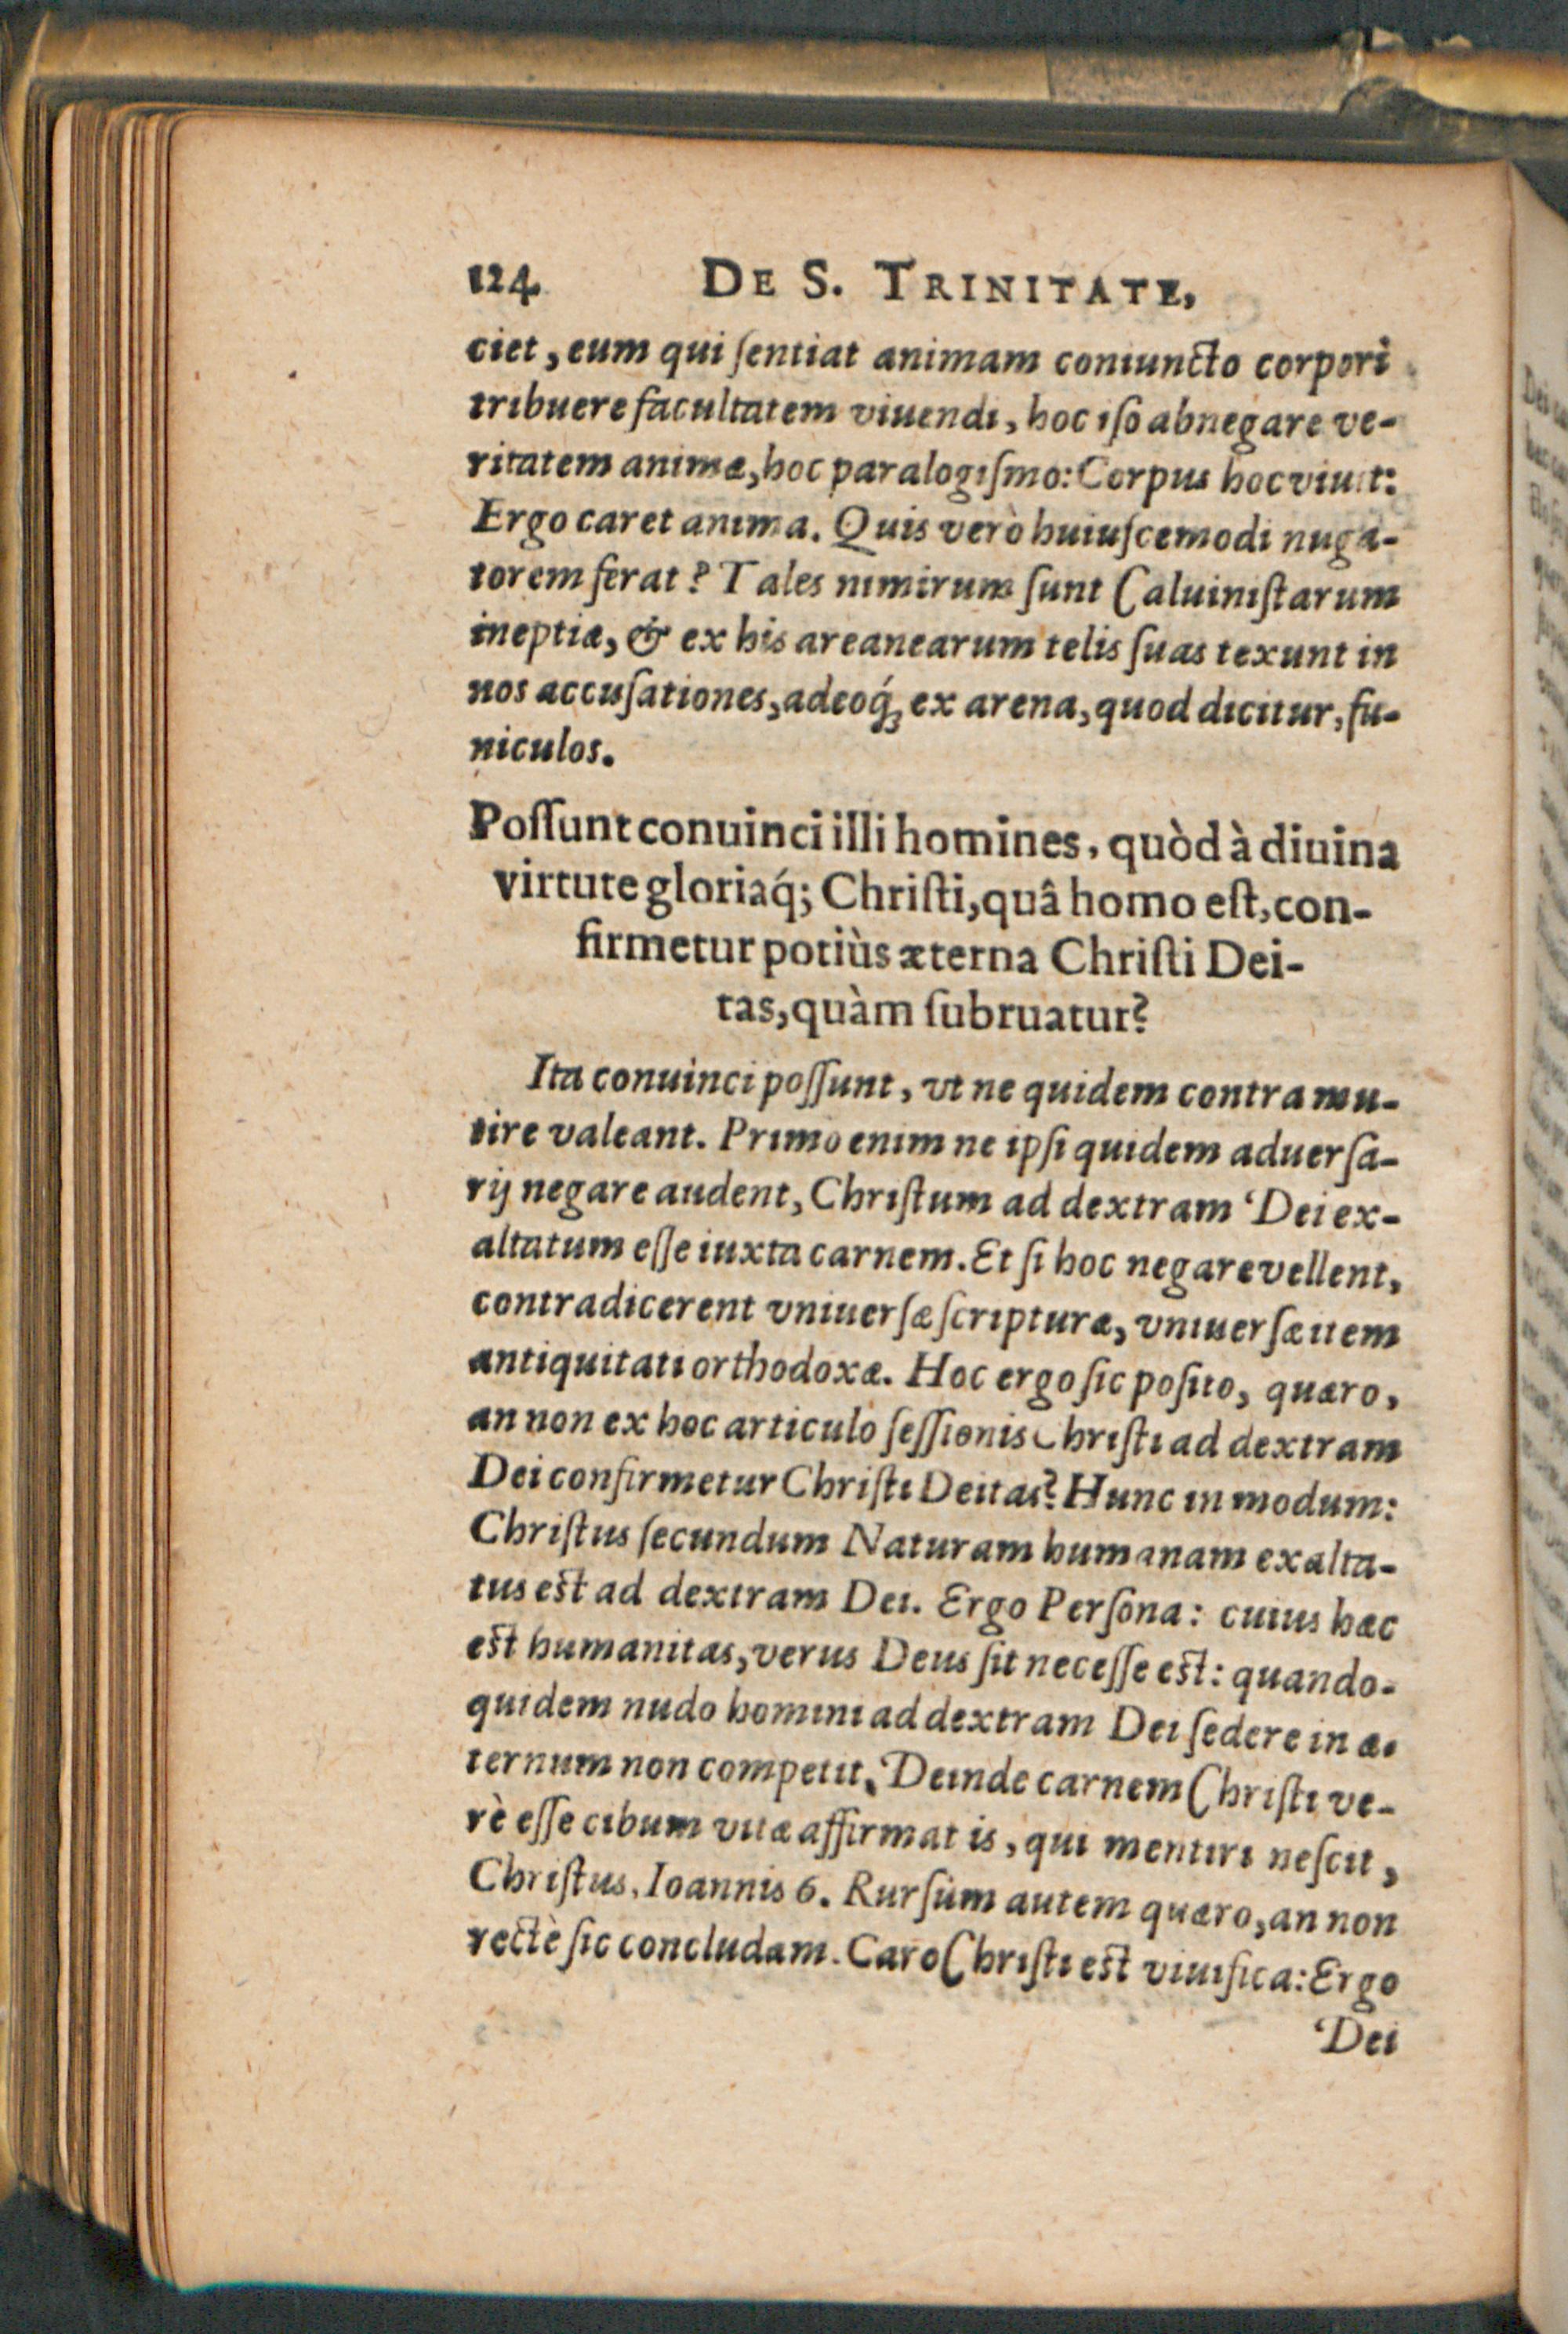 124 DE S. TRINITATE,
ciet, eum qui ſentiat animam coniuncto corpori
tribuere facultatem viuendi, hoc iſo abnegare ve-
ritatem animæ, hoc paralogiſmo: Corpus hoc viuit:
Ergo caret anima. Quis verò huiuſcemodi nuga-
torem ferat? Tales nimirum ſunt Caluiniſtarum
ineptiæ, & ex his areanearum telis ſuas texunt in
nos accuſationes, adeoq́; ex arena, quod dicitur, fu-
niculos.
Poſſunt conuinci illi homines, quòd à diuina
virtute gloriaq́; Chriſti, quâ homo eſt, con-
firmetur potiùs æterna Chriſti Dei-
tas, quàm ſubruatur?
Ita conuinci poſſunt, vt ne quidem contra mu-
tire valeant. Primo enim ne ipſi quidem aduerſa-
rij negare audent, Chriſtum ad dextram Dei ex-
altatum eſſe iuxta carnem. Et ſi hoc negare vellent,
contradicerent vniuerſæ ſcripturæ, vniuerſæ item
antiquitati orthodoxæ. Hoc ergo ſic poſito, quæro,
an non ex hoc articulo ſeſſionis Chriſti ad dextram
Dei confirmetur Chriſti Deitas? Hunc in modum:
Chriſtus ſecundum Naturam humanam exalta-
tus eſt ad dextram Dei. Ergo Perſona: cuius hæc
eſt humanitas, verus Deus ſit neceſſe eſt: quando-
quidem nudo homini ad dextram Dei ſedere in æ-
ternum non competit. Deinde carnem Chriſti ve-
rè eſſe cibum vitæ affirmat is, qui mentiri neſcit,
Chriſtus, Ioannis 6. Rurſùm autem quæro, an non
rectè ſic concludam. Caro Chriſti eſt viuifica: Ergo
Dei